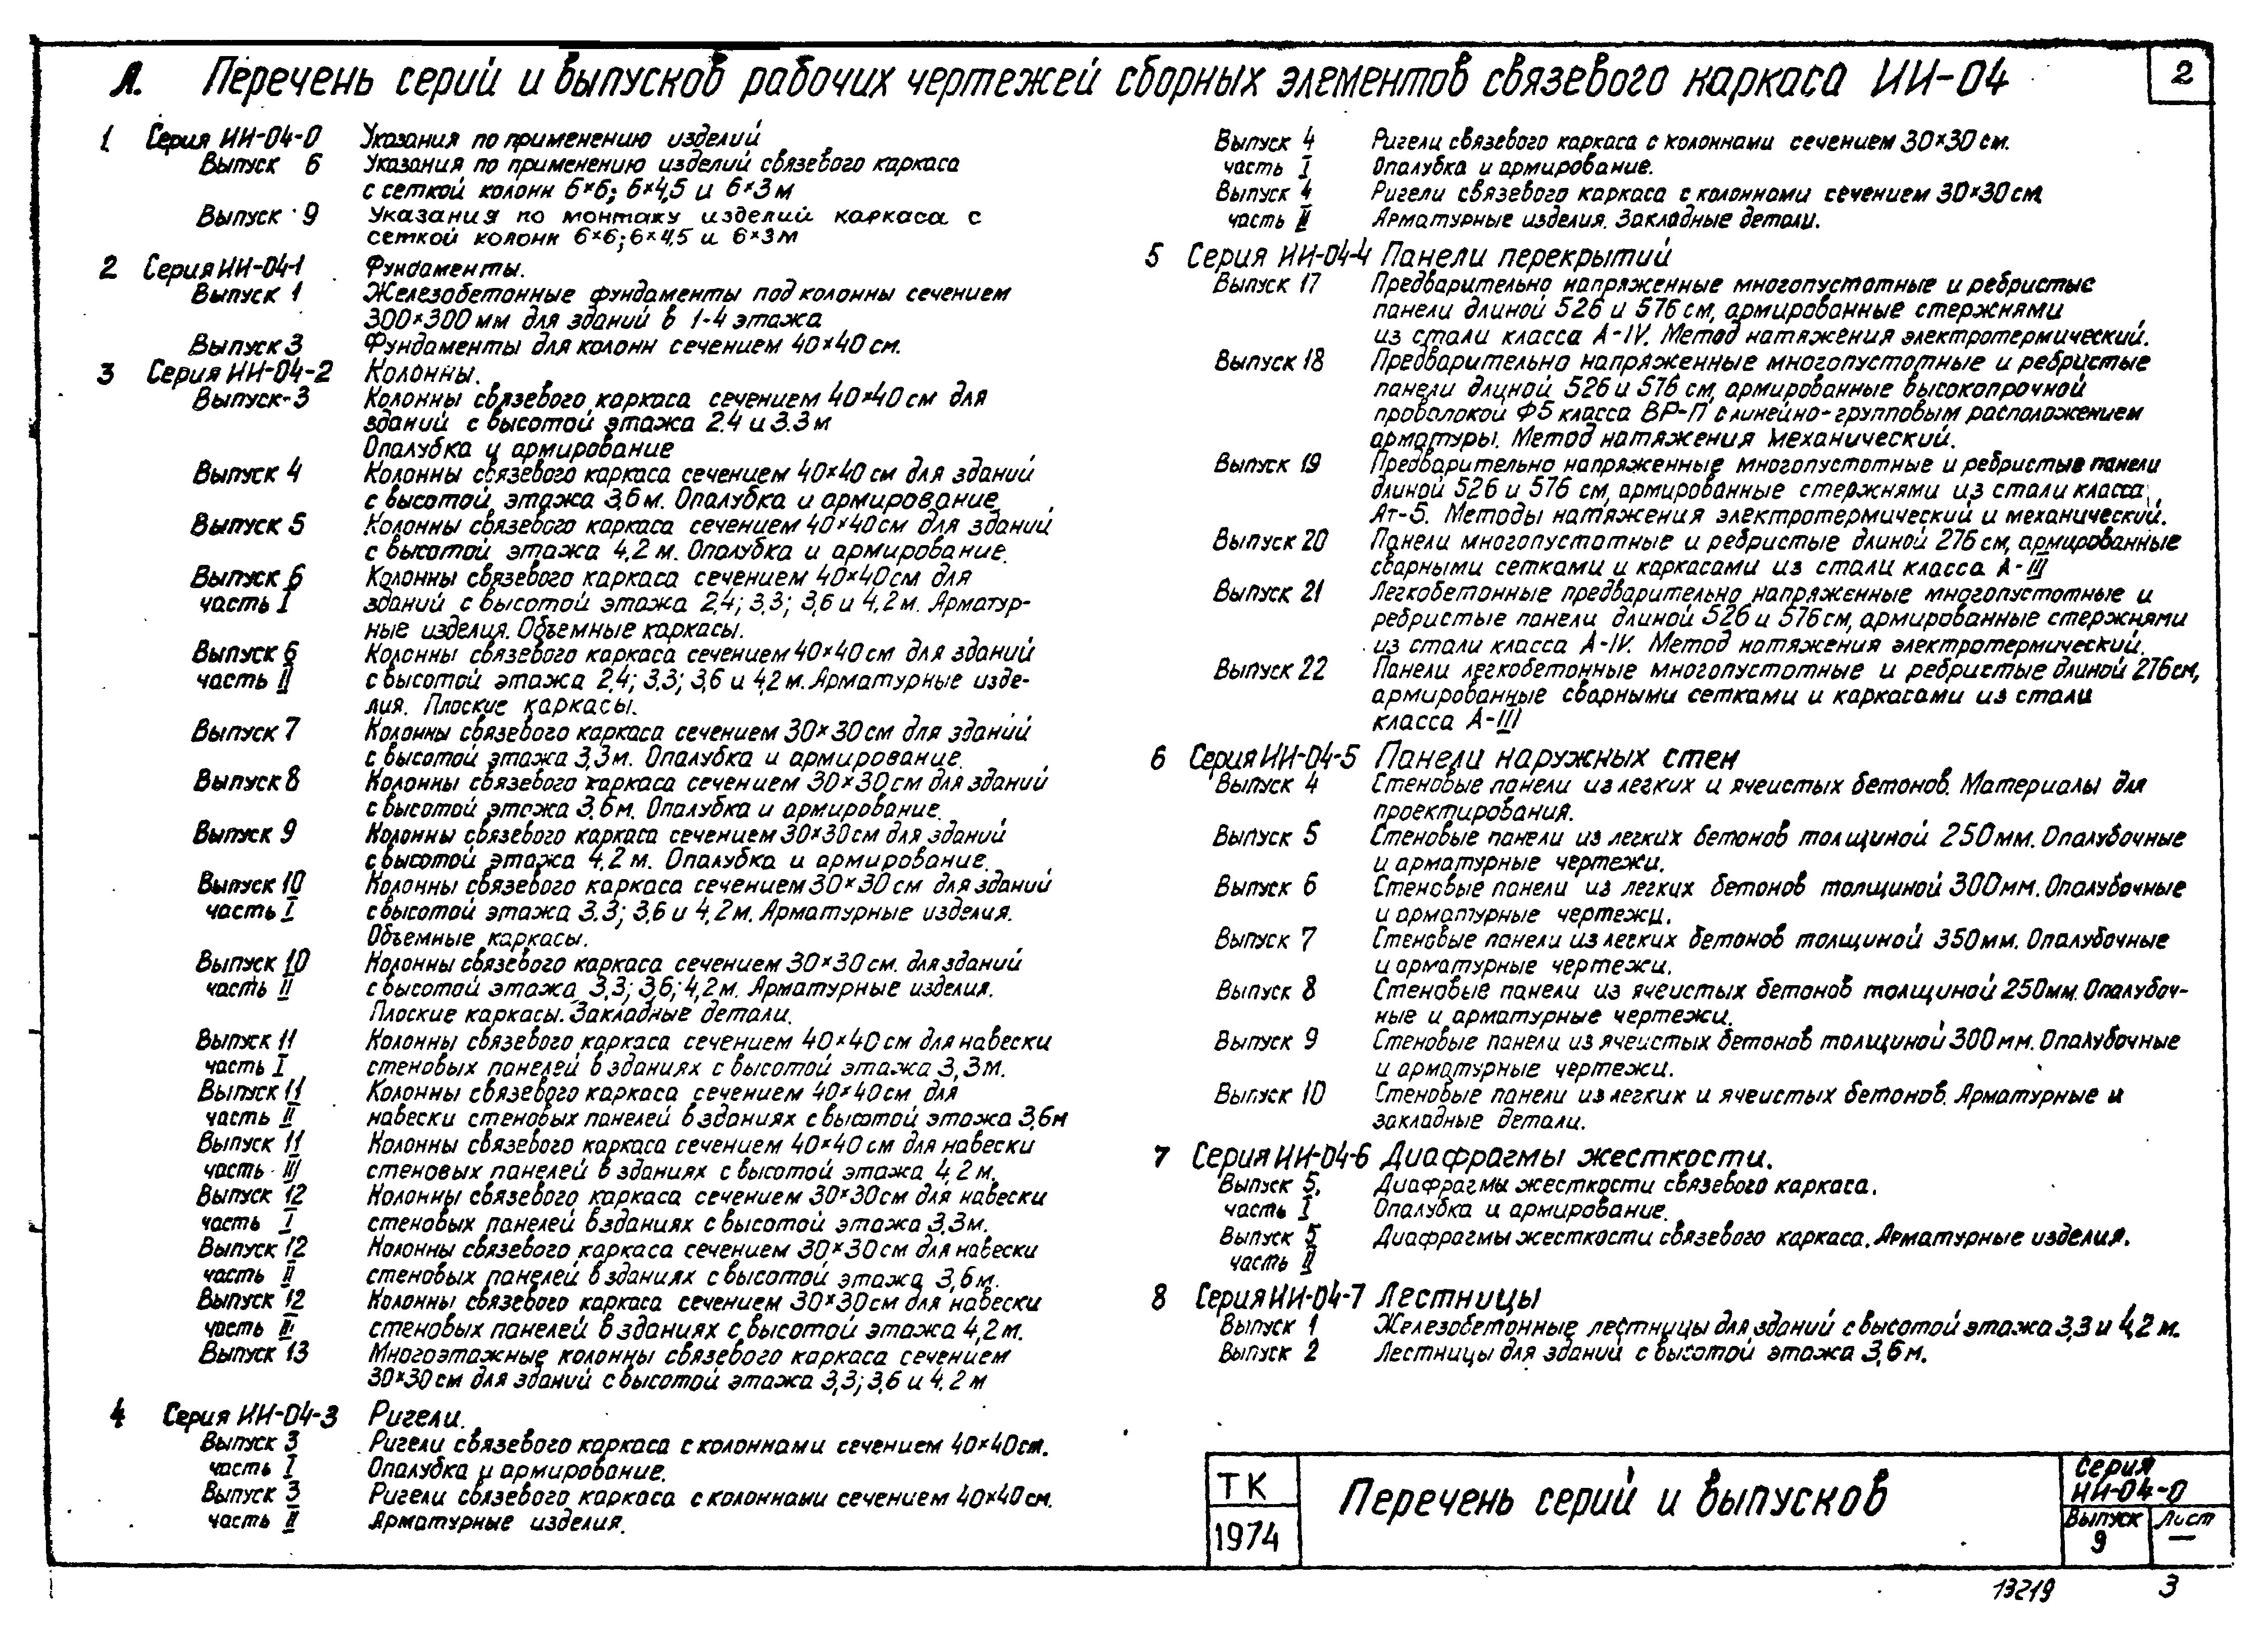 А. Перечень серий и выпусков рабочих чертежей сборных элементов связевого каркаса ИИ-04
2
1 Серия ИИ-04-0 Указания по применению изделий
Выпуск 6 Указания по применению изделий связевого каркаса
с сеткой колонн 6×6; 6×4,5 и 6×3 м
Выпуск 9 Указания по монтажу изделий каркаса с
сеткой колонн 6×6; 6×4,5 и 6×3 м
2 Серия ИИ-04-1 Фундаменты.
Выпуск 1 Железобетонные фундаменты под колонны сечением
300×300 мм для зданий в 1-4 этажа
Выпуск 3 Фундаменты для колонн сечением 40×40 см.
3 Серия ИИ-04-2 Колонны.
Выпуск-3 Колонны связевого каркаса сечением 40×40 см для
зданий с высотой этажа 2.4 и 3.3 м
Опалубка и армирование
Выпуск 4 Колонны связевого каркаса сечением 40×40 см для зданий
с высотой этажа 3,6 м. Опалубка и армирование
Выпуск 5 Колонны связевого каркаса сечением 40×40 см для зданий
с высотой этажа 4,2 м. Опалубка и армирование.
Выпуск 6 Колонны связевого каркаса сечением 40×40 см для
часть I зданий с высотой этажа 2,4; 3,3; 3,6 и 4,2 м. Арматур-
ные изделия. Объемные каркасы.
Выпуск 6 Колонны связевого каркаса сечением 40×40 см для зданий
часть II с высотой этажа 2,4; 3,3; 3,6 и 4,2 м. Арматурные изде-
лия. Плоские каркасы.
Выпуск 7 Колонны связевого каркаса сечением 30×30 см для зданий
с высотой этажа 3,3 м. Опалубка и армирование.
Выпуск 8 Колонны связевого каркаса сечением 30×30 см для зданий
с высотой этажа 3.6 м. Опалубка и армирование.
Выпуск 9 Колонны связевого каркаса сечением 30×30 см для зданий
с высотой этажа 4,2 м. Опалубка и армирование.
Выпуск 10 Колонны связевого каркаса сечением 30×30 см для зданий
часть I с высотой этажа 3.3; 3,6 и 4,2 м. Арматурные изделия.
Объемные каркасы.
Выпуск 10 Колонны связевого каркаса сечением 30×30 см. для зданий
часть II с высотой этажа 3,3; 3,6; 4,2 м. Арматурные изделия.
Плоские каркасы. Закладные детали.
Выпуск 11 Колонны связевого каркаса сечением 40×40 см для навески
часть I стеновых панелей в зданиях с высотой этажа 3,3 м.
Выпуск 11 Колонны связевого каркаса сечением 40×40 см для
часть II навески стеновых панелей в зданиях с высотой этажа 3,6 м
Выпуск 11 Колонны связевого каркаса сечением 40×40 см для навески
часть III стеновых панелей в зданиях с высотой этажа 4,2 м.
Выпуск 12 Колонны связевого каркаса сечением 30×30 см для навески
часть I стеновых панелей в зданиях с высотой этажа 3,3 м.
Выпуск 12 Колонны связевого каркаса сечением 30×30 см для навески
часть II стеновых панелей в зданиях с высотой этажа 3,6 м.
Выпуск 12 Колонны связевого каркаса сечением 30×30 см для навески
часть III стеновых панелей в зданиях с высотой этажа 4,2 м.
Выпуск 13 Многоэтажные колонны связевого каркаса сечением
30×30 см для зданий с высотой этажа 3,3; 3,6 и 4.2 м
4 Серия ИИ-04-3 Ригели.
Выпуск 3 Ригели связевого каркаса с колоннами сечением 40×40 см.
часть I Опалубка и армирование.
Выпуск 3 Ригели связевого каркаса с колоннами сечением 40×40 см.
часть II Арматурные изделия.
Выпуск 4 Ригели связевого каркаса с колоннами сечением 30×30 см.
часть I Опалубка и армирование.
Выпуск 4 Ригели связевого каркаса с колоннами сечением 30×30 см.
часть II Арматурные изделия. Закладные детали.
5 Серия ИИ-04-4 Панели перекрытий
Выпуск 17 Предварительно напряженные многопустотные и ребристые
панели длиной 526 и 576 см, армированные стержнями
из стали класса А-IV. Метод натяжения электротермический.
Выпуск 18 Предварительно напряженные многопустотные и ребристые
панели длиной 526 и 576 см, армированные высокопрочной
проволокой Ф5 класса ВР-П с линейно-групповым расположением
арматуры. Метод натяжения механический.
Выпуск 19 Предварительно напряженные многопустотные и ребристые панели
длиной 526 и 576 см, армированные стержнями из стали класса
Ат-5. Методы натяжения электротермический и механический.
Выпуск 20 Панели многопустотные и ребристые длиной 276 см, армированные
сварными сетками и каркасами из стали класса А-III
Выпуск 21 Легкобетонные предварительно напряженные многопустотные и
ребристые панели длиной 526 и 576 см, армированные стержнями
из стали класса А-IV. Метод натяжения электротермический.
Выпуск 22 Панели легкобетонные многопустотные и ребристые длиной 276 см,
армированные сварными сетками и каркасами из стали
класса А-III
6 Серия ИИ-04-5 Панели наружных стен
Выпуск 4 Стеновые панели из легких и ячеистых бетонов. Материалы для
проектирования.
Выпуск 5 Стеновые панели из легких бетонов толщиной 250 мм. Опалубочные
и арматурные чертежи.
Выпуск 6 Стеновые панели из легких бетонов толщиной 300 мм. Опалубочные
и арматурные чертежи.
Выпуск 7 Стеновые панели из легких бетонов толщиной 350 мм. Опалубочные
и арматурные чертежи.
Выпуск 8 Стеновые панели из ячеистых бетонов толщиной 250 мм. Опалубоч-
ные и арматурные чертежи.
Выпуск 9 Стеновые панели из ячеистых бетонов толщиной 300 мм. Опалубочные
и арматурные чертежи.
Выпуск 10 Стеновые панели из легких и ячеистых бетонов. Арматурные и
закладные детали.
7 Серия ИИ-04-6 Диафрагмы жесткости.
Выпуск 5, Диафрагмы жесткости связевого каркаса.
часть I Опалубка и армирование.
Выпуск 5 Диафрагмы жесткости связевого каркаса. Арматурные изделия.
часть II
8 Серия ИИ-04-7 Лестницы
Выпуск 1 Железобетонные лестницы для зданий с высотой этажа 3,3 и 4,2 м.
Выпуск 2 Лестницы для зданий с высотой этажа 3,6 м.
ТК
1974
Перечень серий и выпусков
Серия
ИИ-04-0
Выпуск
9
Лист
—
13219 3